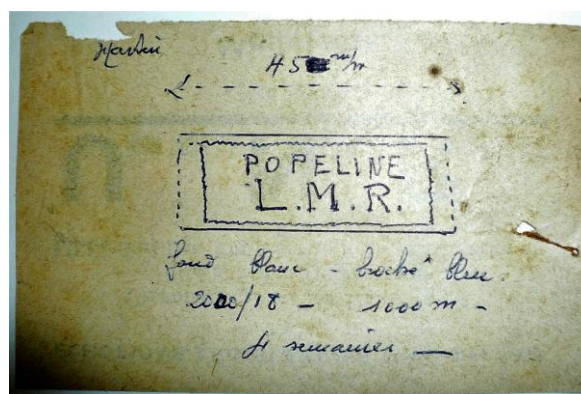 Martin
45 m/m
POPELINE
L.M.R.
fond blanc - broché bleu
2000/18 - 1000 m -
4 semaines -